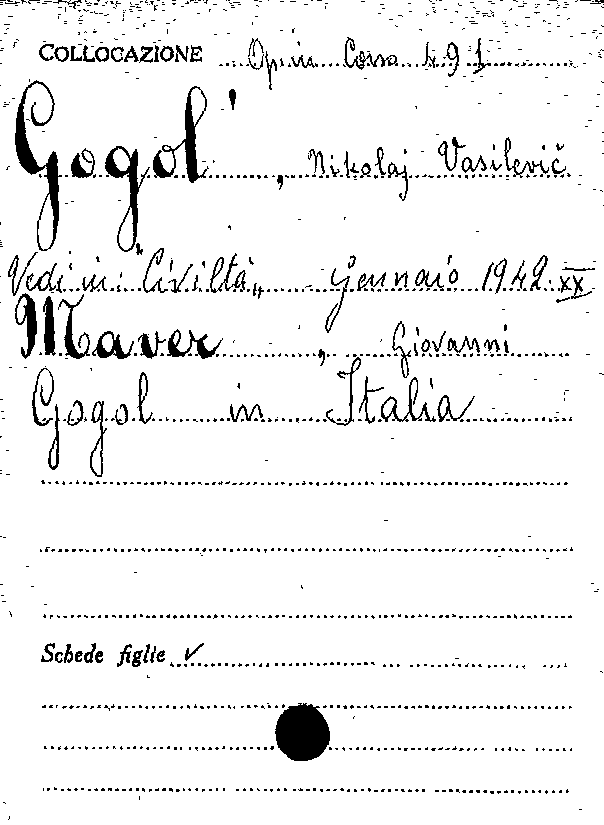 COLLOCAZIONE Op. in Corso 491
Gogol', Nikolaj Vasilevič
Vedi in: "Civiltà„ - Gennaio 1942 XX
Maver, Giovanni
Gogol in Italia
Schede figlie ✓